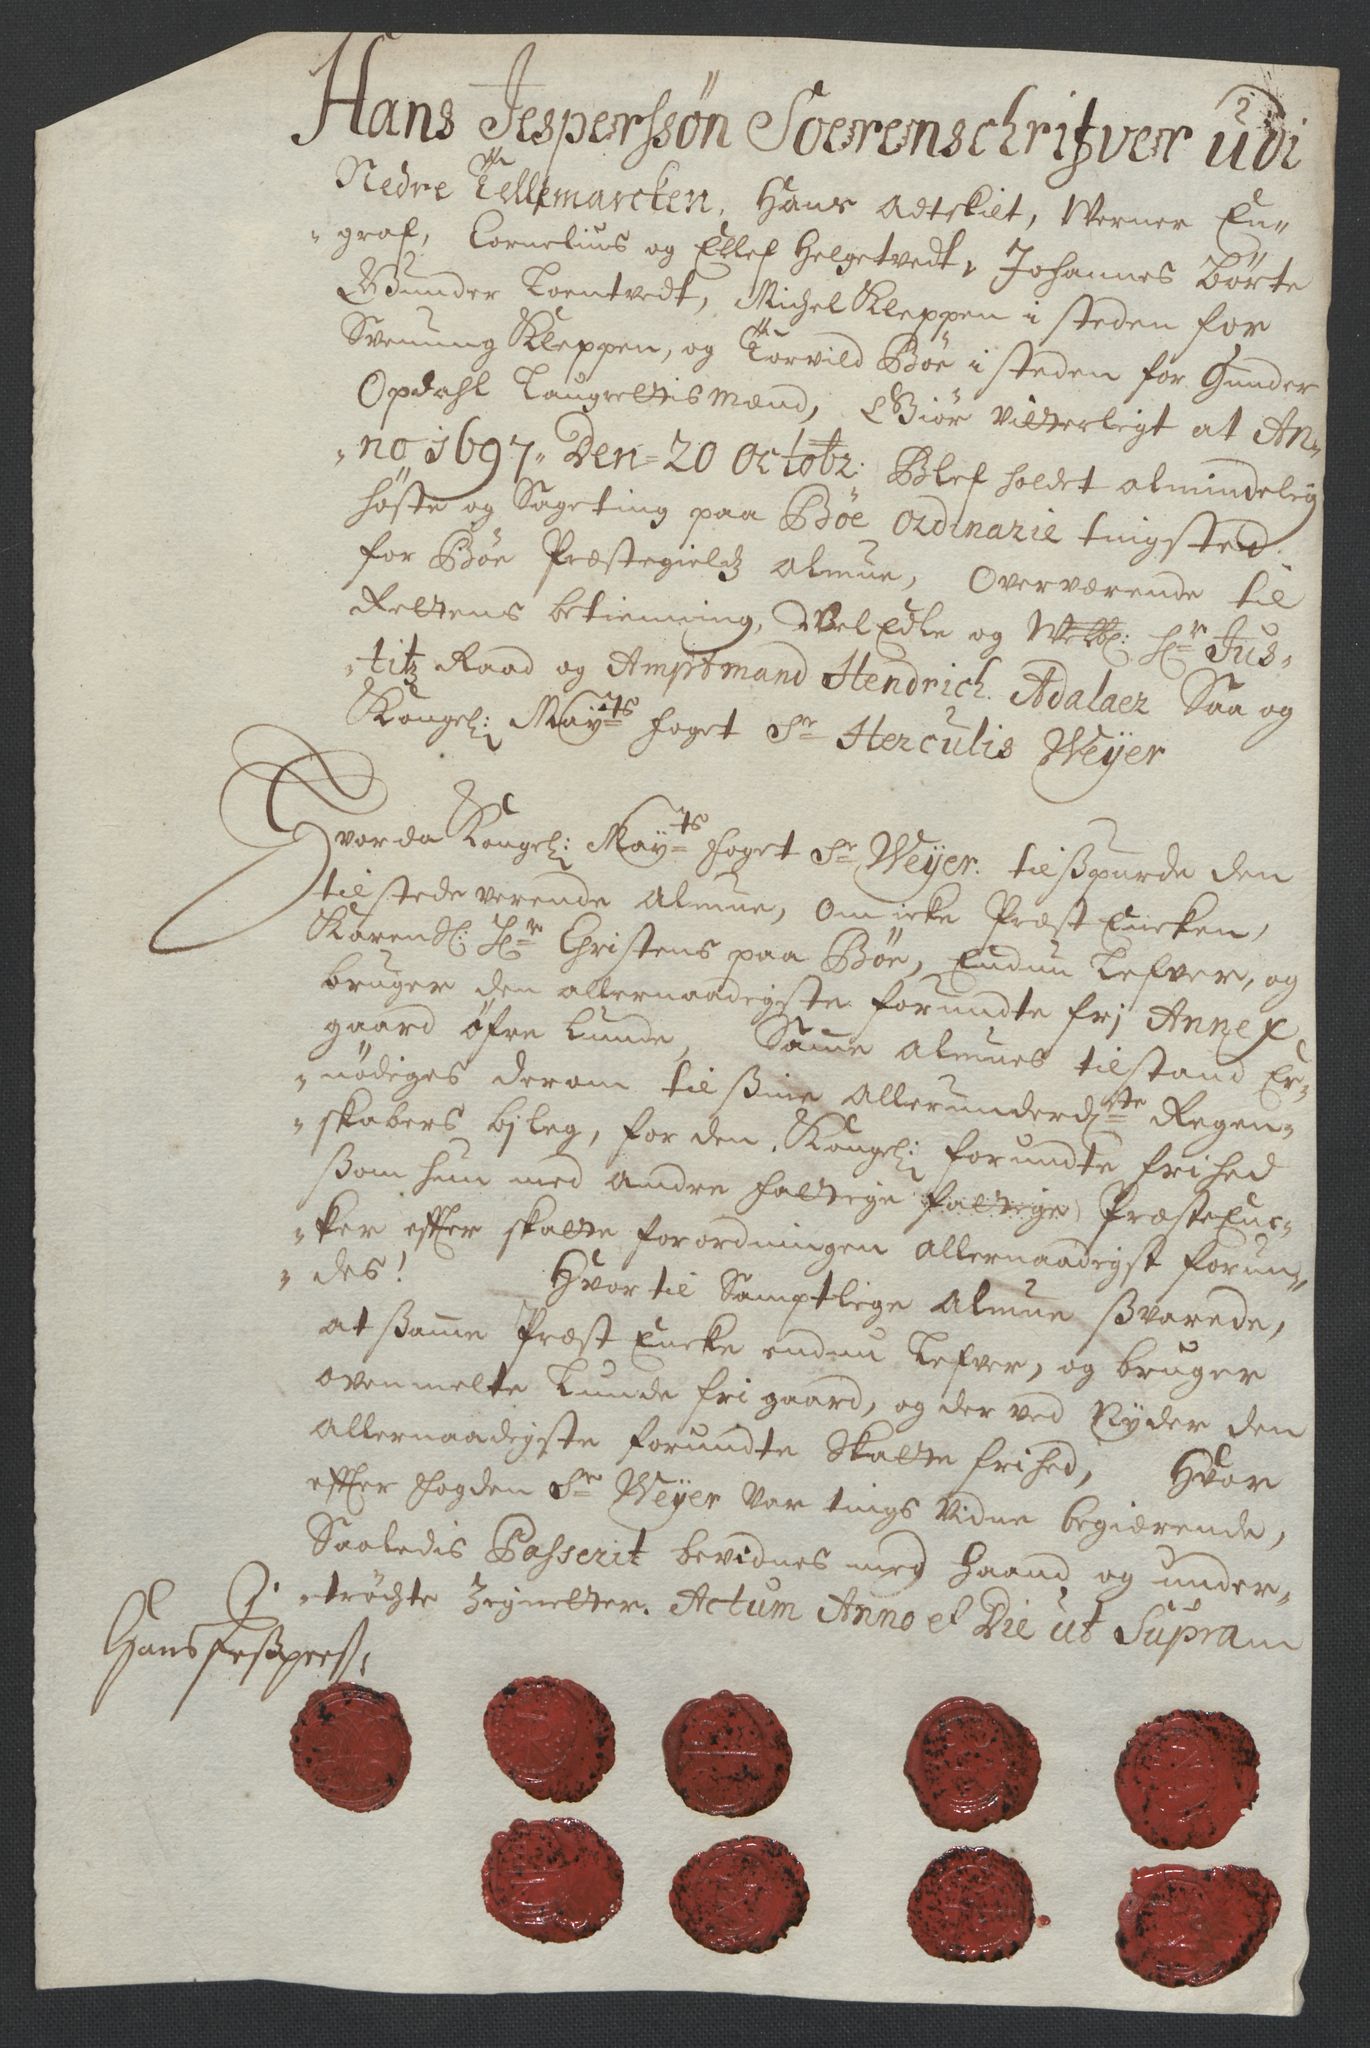 Hans Jesperssøn Soerenschrifver udi
Nedre Tellemarcken, Hans Adtskilt, Werner En-
-graf, Cornelius og Ellef Helgetvedt, Johannes Børte
Gunder Toentvedt, Michel Kleppen i steden for
Svenung Kleppen, og Torvild Bøe i steden for Gunder
Opdahl Laugrettis mænd, Giør vitterligt at An-
-no 1697 Den 20 Octobr: Blef holdet almindelig
høste og Sageting paa Bøe ordinarie tingsted
for Bøe Præstegieldz almue, Overværende til
Rettens betienning, Vel Edle og Welb: Hr Jus-
-titz Raad og Amptmand Hendrich Adalaer Saa og
Kongel: Mayts foget Sr Herculis Weÿer
Hvor da Kongel: Mayts foget Sr Weÿer tilspurde den
tilstede verende almue, om icke Præst Encken,
Karen Sl: Hr Christens paa Bøe, Endnu Lefver, og
bruger den allernaadigste forundte frj Annex
gaard øfre Lunde, Same almues tilstand Er-
-nødiges derom til sine Allerunderdste Regen-
-skabers bjleg, for den Kongel: forundte frihed
som hun med andre fattige fattige Præsteenc-
-ker efter skatte forordningen allernaadigst forun-
-des! Hvortil Samptlige Almue svarede,
at same Præst Encke endnu Lefver, og bruger
ovenmelte Lunde fri gaard, og der ved Nÿder den
allernaadigste forundte Skatte frihed, Hvor
efter fogden Sr Weÿer var tings vidne begiærende,
Saaledis Passerit bevidnes med Haand og under-
-trøchte Zignetter. Actum Anno et Die ut Supra
Hans Jesspers: